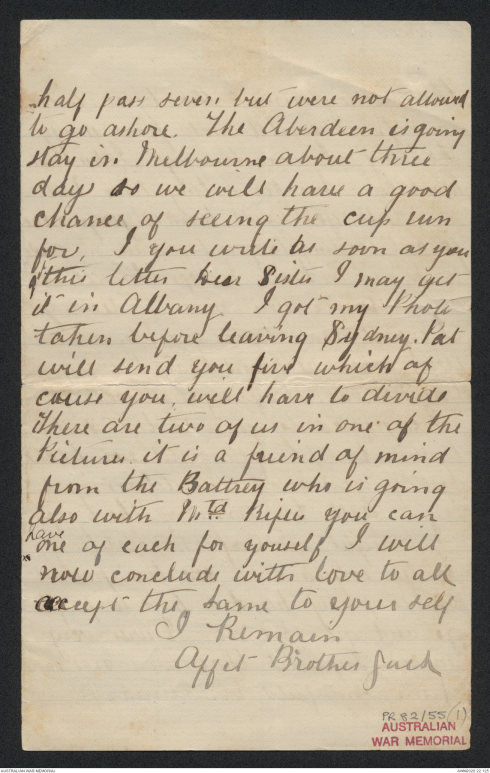 half pass seven but were not allowed
to go ashore. The Aberdeen is going
stay in Melbourne about three
day so we will have a good
chance of seeing the cup run
for, I you write as soon as you
this letter Dear Sister I may get
it in Albany I got my Photo
taken before leaving Sydney. Pat
will send you five which of
couse you will have to divide
There are two of us in one of the
Pictures it is a friend of mind
from the Battrey who is going
also with Mtd Rifles you can
have
one of each for youself I will
now conclude with love to all
accept the same to your self
I Remain
Affet Brother Jack
PR 82/55 (1)
AUSTRALIAN
WAR MEMORIAL
AUSTRALIAN WAR MEMORIAL